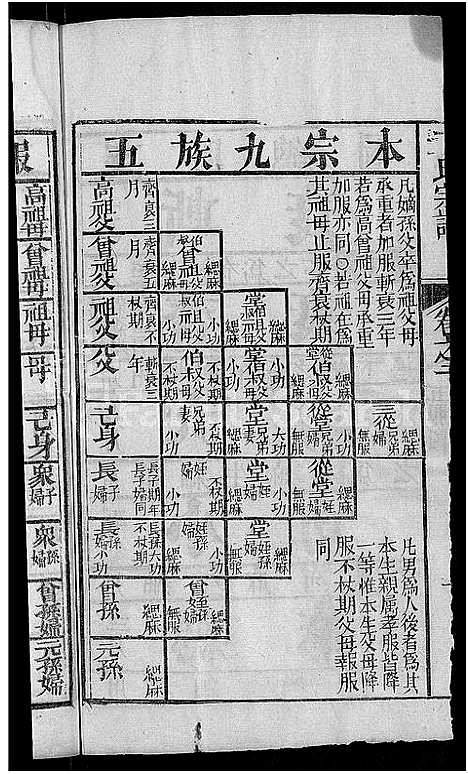 本宗九族五
凡嫡孫父卒為祖父母
承重者加服斬衰三年
若為高曾祖父母承重
加服亦同○若祖在為
其祖母止服齊衰杖期
高祖父 齊衰三月
曾祖父 齊衰五月
伯曾祖父母 緦麻
祖父 齊衰不杖期
伯祖父母 小功
堂伯祖父母 緦麻
父 斬衰三年
伯叔父母 不杖期
堂伯叔父母 小功
從堂伯叔父母 緦麻 無服
己身
兄弟 不杖期
妻 小功
堂兄弟 大功
妻 緦麻
從堂兄弟 小功
婦 無服
三從兄弟 緦麻
婦 無服
長子 長子期年
婦 長子婦不杖期
姪 不杖期
婦 小功
堂姪 小功
婦 緦麻
從堂姪 緦麻
婦 無服
長孫 長孫不杖期
婦 小功
姪孫 小功
婦 緦麻
堂姪孫 緦麻
婦 無服
曾孫 緦麻
曾姪孫 緦麻
婦 無服
元孫 緦麻
凡男為人後者為其
本生親屬孝服皆降
一等惟本生父母降
服不杖期父母報服
同
服
高祖母
曾祖母
祖母
母
己身
眾子
婦
眾孫
婦
曾孫婦
元孫婦